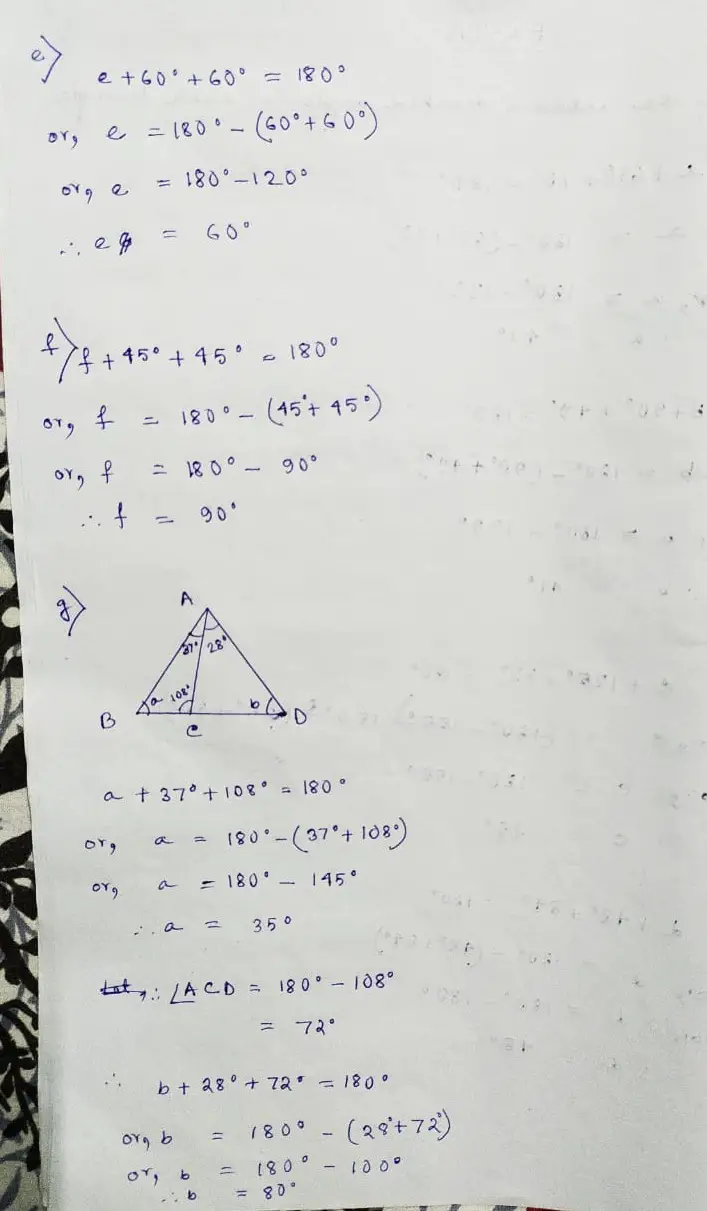 e)
e + 60° + 60° = 180°
or, e = 180° - (60° + 60°)
or, e = 180° - 120°
∴ e = 60°
f) f + 45° + 45° = 180°
or, f = 180° - (45° + 45°)
or, f = 180° - 90°
∴ f = 90°
g)
A
37° 28°
a 108° b
B C D
a + 37° + 108° = 180°
or, a = 180° - (37° + 108°)
or, a = 180° - 145°
∴ a = 35°
∴ ∠ACD = 180° - 108°
= 72°
∴ b + 28° + 72° = 180°
or, b = 180° - (28° + 72°)
or, b = 180° - 100°
∴ b = 80°